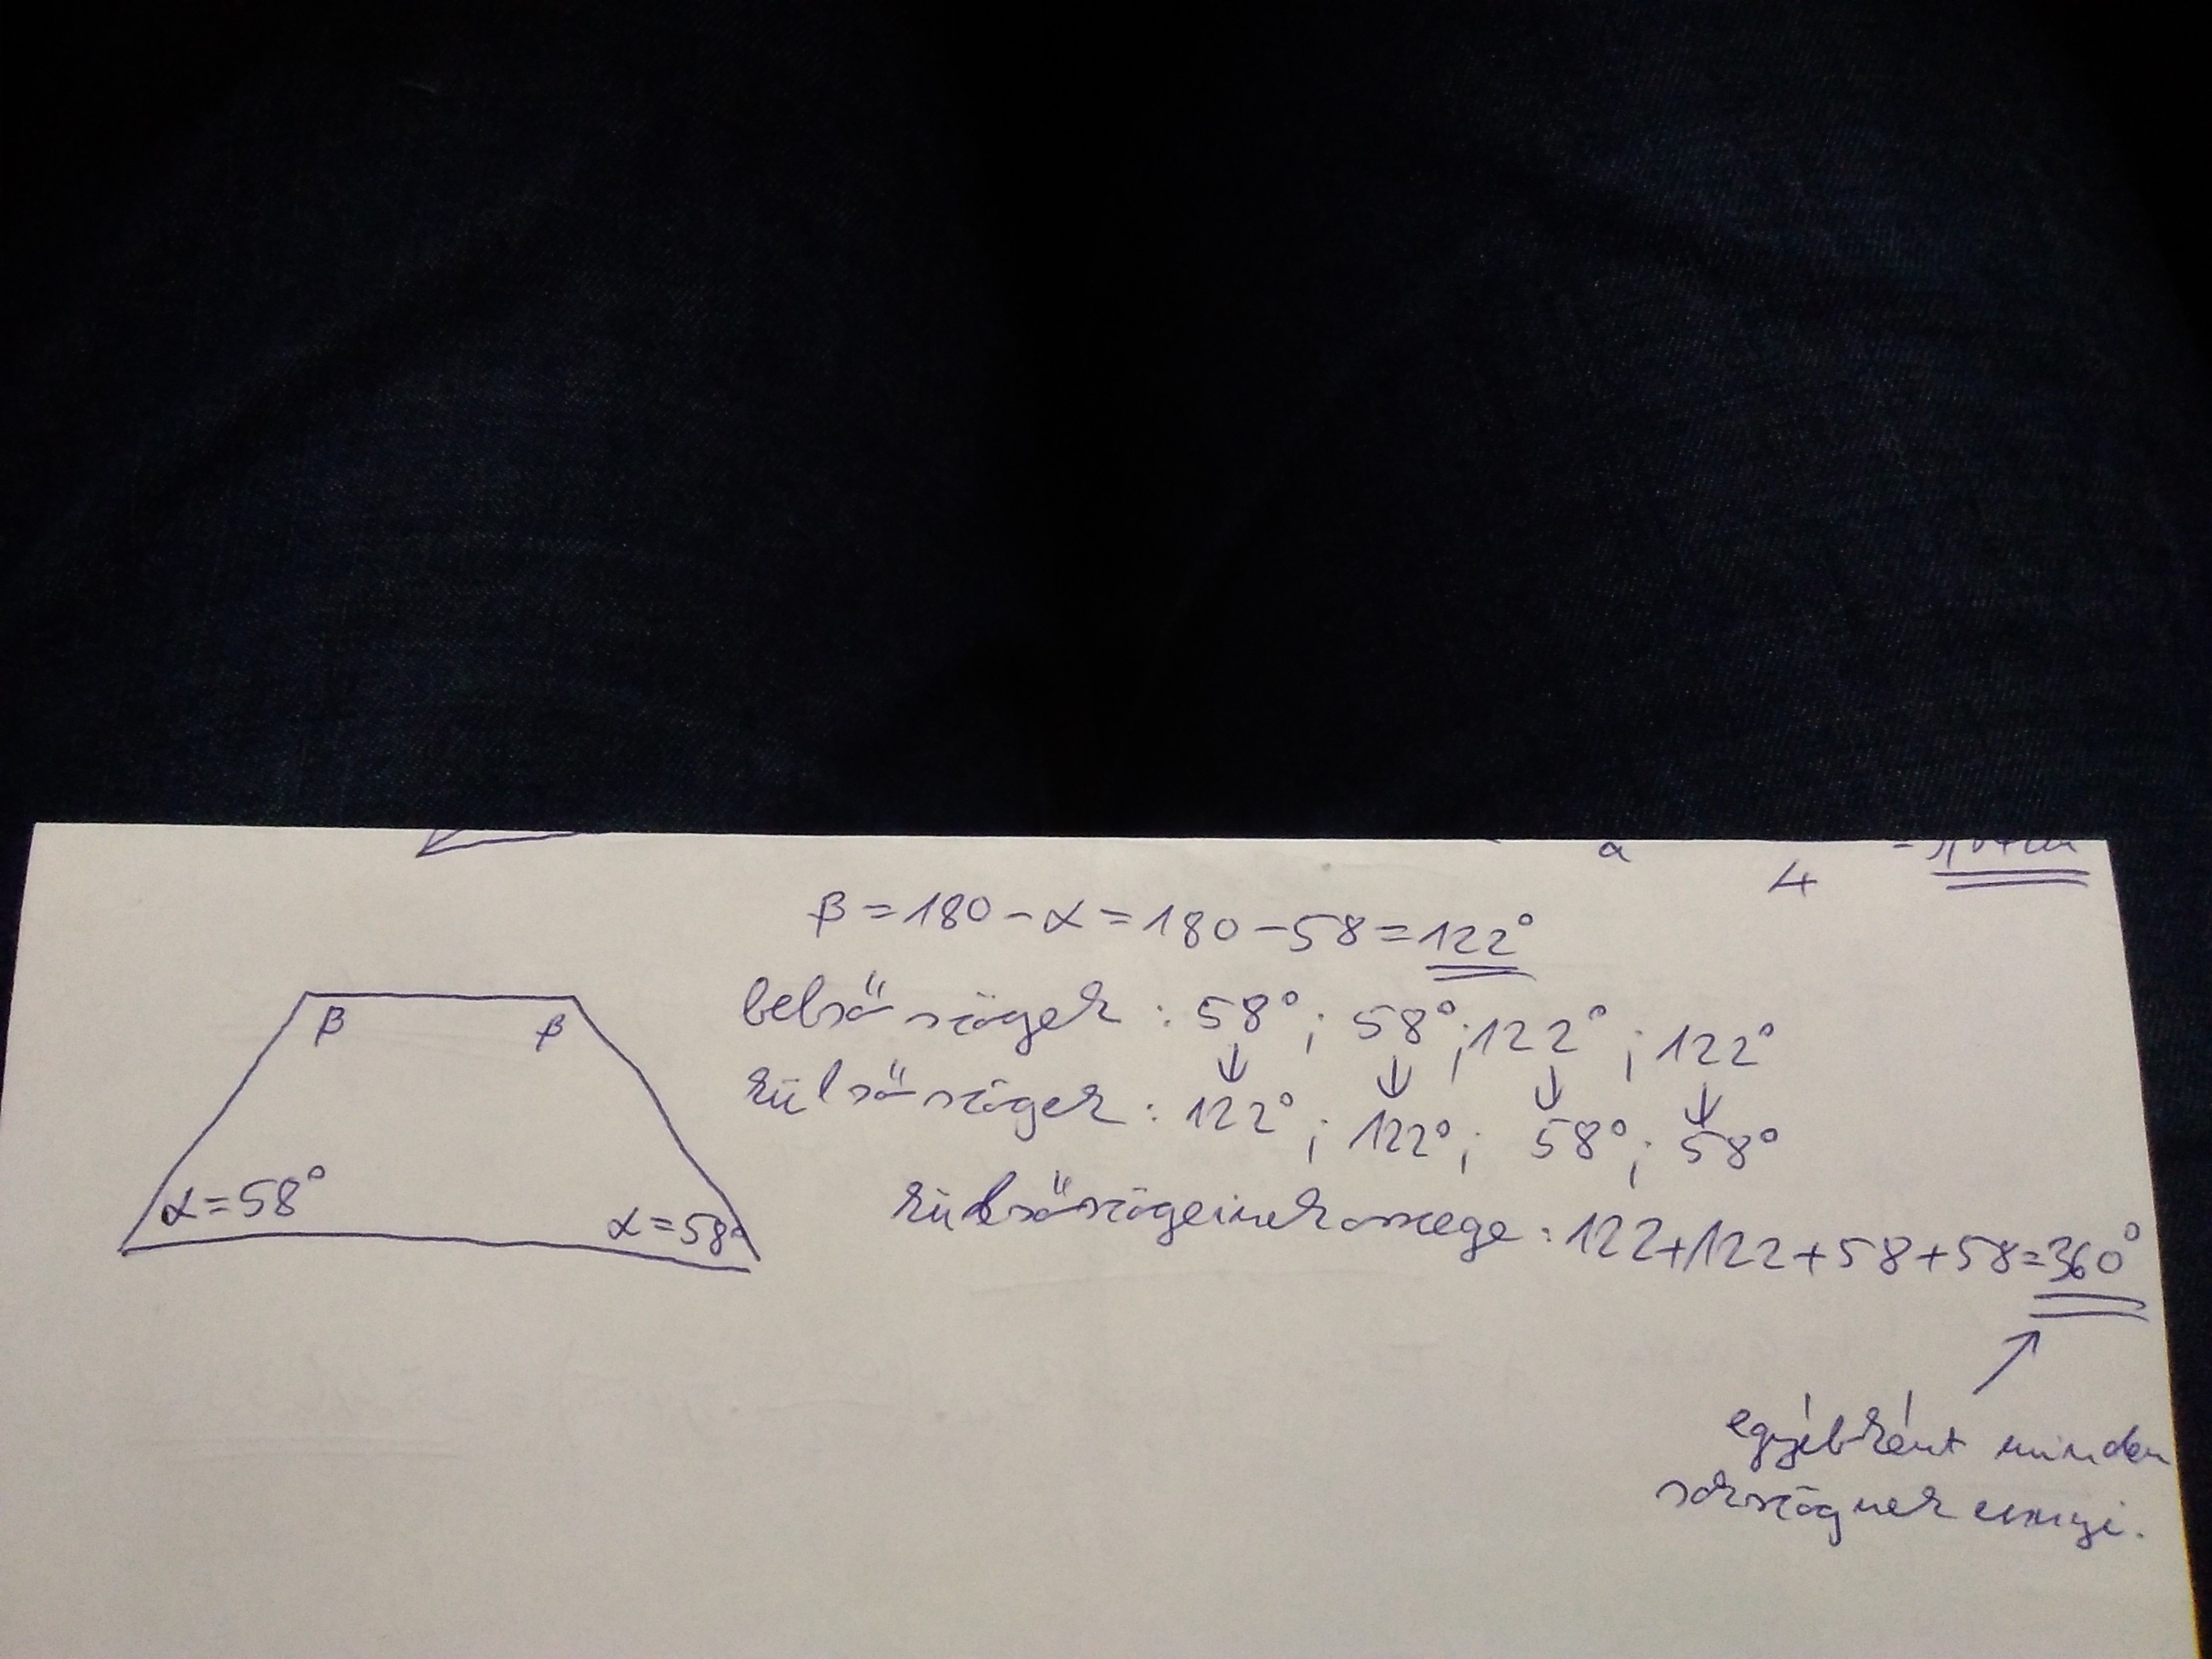 a
4
β = 180 - α = 180 - 58 = 122°
belső szögek : 58° ; 58° ; 122° ; 122°
külső szögek : 122° ; 122° ; 58° ; 58°
külső szögeinek összege : 122 + 122 + 58 + 58 = 360°
β β
α = 58° α = 58°
egyébként minden
sokszögnek ennyi.